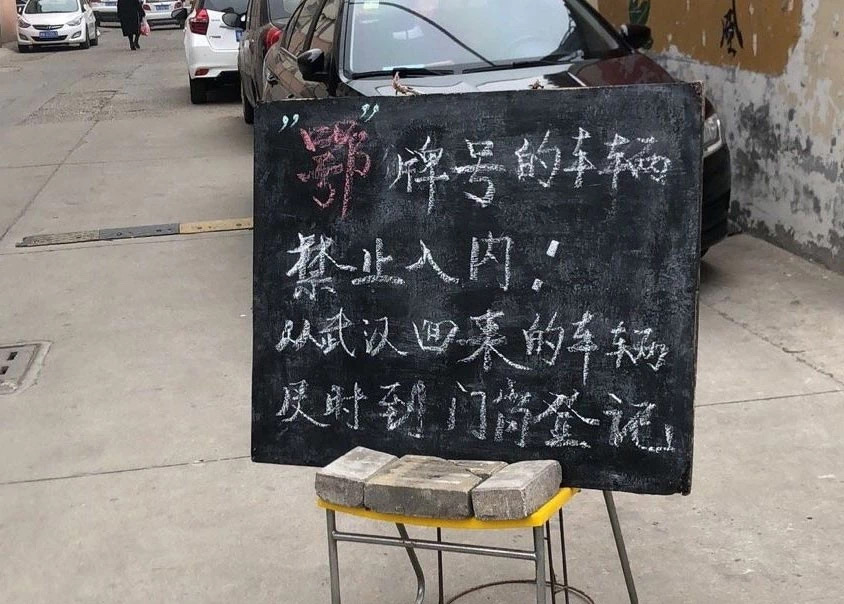 "鄂"牌号的车辆
禁止入内！
从武汉回来的车辆
及时到门岗登记」
风